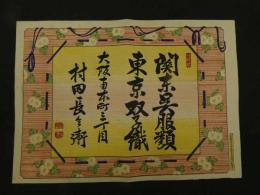 関東呉服類
東京双子織
大阪南本町三丁目
村田長兵衛